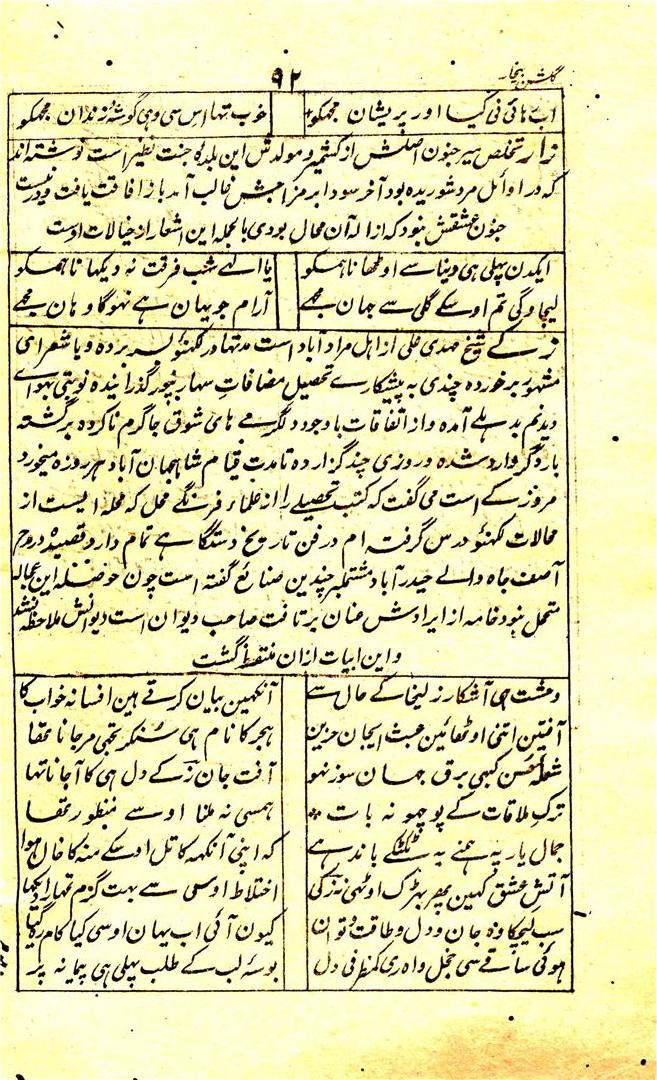 گلشن بیخار
۹۲
اب ہائی نی کیا اور پریشان مجھکو خوب تہا اس سی وہی گوشۂ زندان مجھکو
زار تخلص میر جیون اصلش از کشمیر و مولدش این بلدۂ جنت نظیر است نوشته اند
که در اوائل مرد شوریده بود آخر سودا بر مزاجش غالب آمد باز افاقت یافت
جنون عشقش نبود که ازالۀ آن محال بودی بالجمله این اشعار از خیالات اوست
ایکدن پہلی ہی دنیا سے اوٹھانا ہمکو یا الہی شب فرقت نہ دیکھانا ہمکو
لیچاوگی تم اوسکے گلی سے جہان مجھے آرام جو یہان ہے نہوگا وہان مجھے
زکے شیخ مہدی علی از اہل مرادآباد است مدتها در لکھنؤ بسر برده و با شعرای
مشهور برخورده چندی به پیشکارے تحصیل مضافات سہارنپور گذرانیده نوبتی بہوای
دیدنم بدہلے آمده و از اتفاقات باوجود گرمے های شوق جا گرم ناکرده برگشته
بار دگر وارد شده و روزی چند گزارده تا مدت قیام شاہجہان آباد هر روزه میخورد
مرد زکے است می گفت که کتب تحصیلے را از علماء فرنگے محل که محله ایست از
محالات لکھنؤ درس گرفته ام در فن تاریخ دستگاہے تمام دارد قصیدہ در مدح
آصف جاه والے حیدرآباد مشتمل بر چندین صنائع گفته است چون حوصله این عجاله
متحمل نبود خامه از ایرادش عنان برتافت صاحب دیوان است دیوانش ملاحظه شد
و این ابیات ازان ملتقط گشت
وحشت ہی آشکار زلیخا کے حال سے آنکھین بیان کرتے ہین افسانہ خواب کا
آفتین اتنی اوٹھائین عبث ایجان حزین ہجر کا نام ہی سنکر تجھی مر جانا تھا
شعلہ حسن کہیں برق جہان سوز نہو آفت جان زکے دل ہی کا آجانا تہا
ترک ملاقات کے پوچھو نہ بات ہمسی نہ ملنا اوسے منظور تھا
جمال یار پہ ہمنے یہ ٹکٹکے باندہے کہ اپنی آنکھہ کا تل اوسکے منہ کا خال ہوا
آتش عشق کہین پھر بہڑک اوٹھی نہ زکی اختلاط اوسی سے بہت گرم تہا دیکھا
سب لیچکا وہ جان و دل و طاقت و توان کیون آئی اب یہان اوسی کیا کام رہ گیا
ہوئی ساقے سی خجل واہ ری کمظرفی دل بوسۂ لب کے طلب پہلی ہی پیمانہ پر